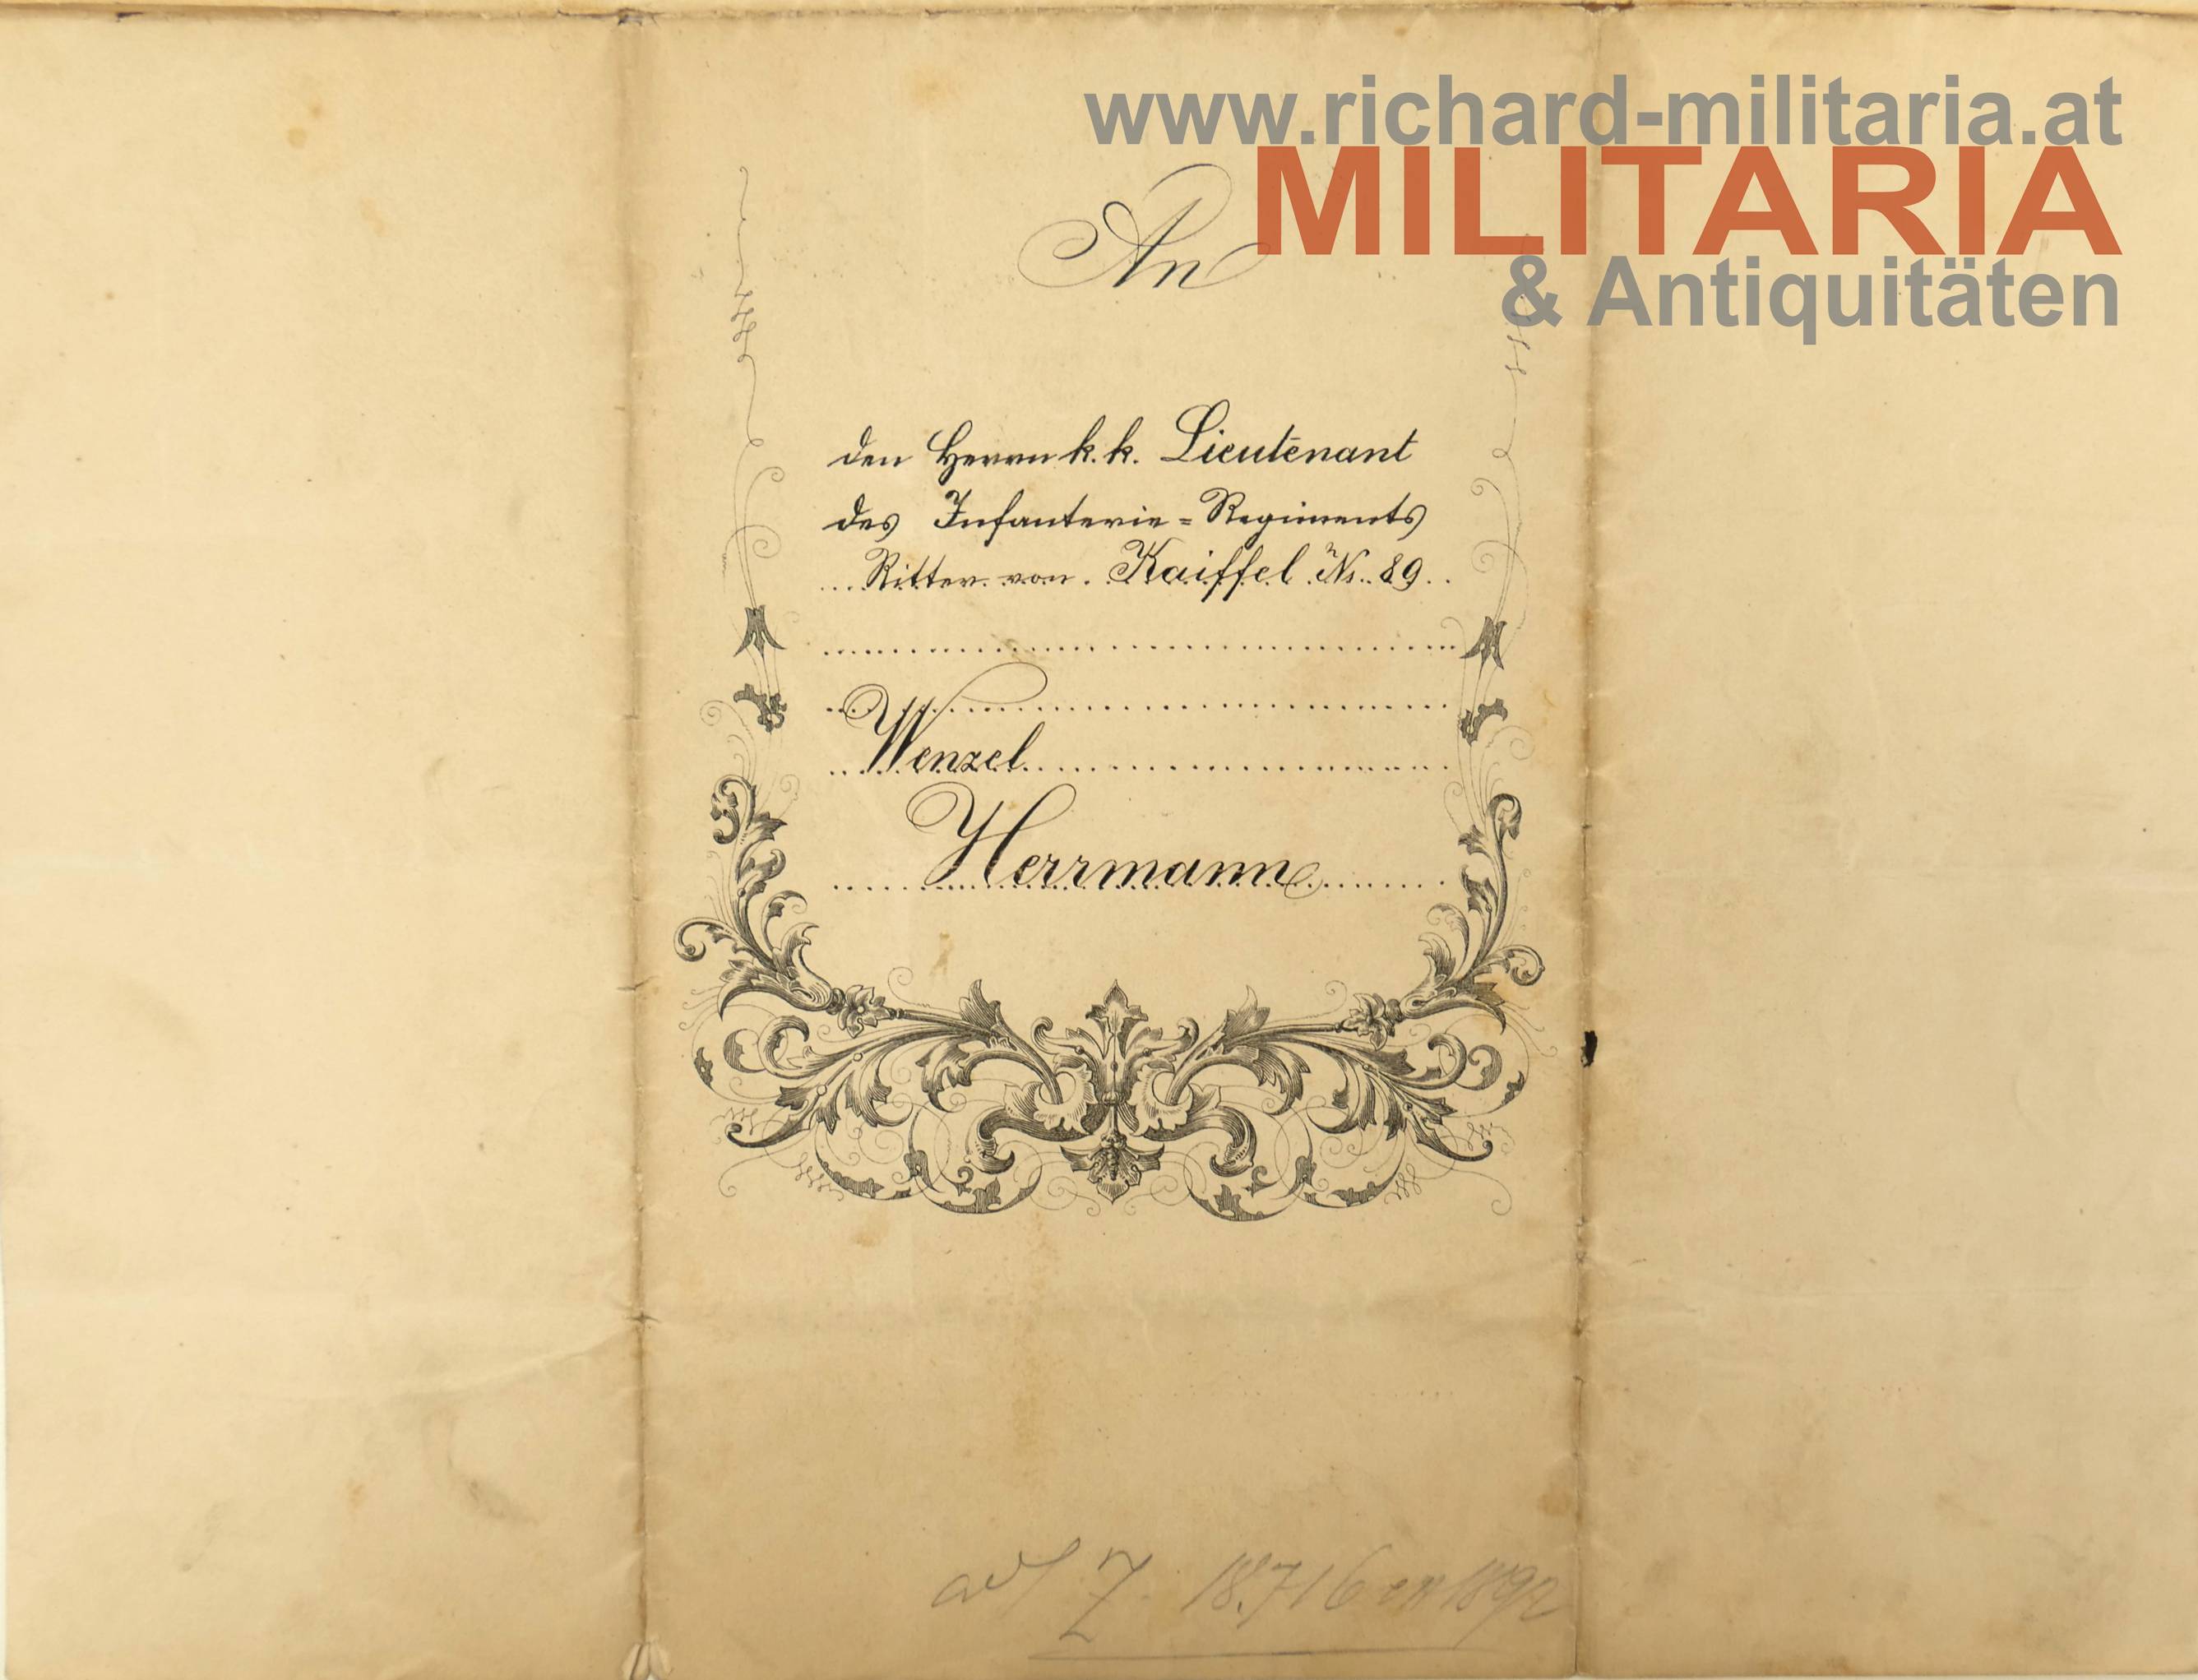 www.richard-militaria.at
MILITARIA
& Antiquitäten
An
den Herrn k. k. Lieutenant
des Infanterie=Regiments
Ritter von Kaiffel Nr. 89
Wenzel
Herrmann
ad Z. 18.716 ex 1892